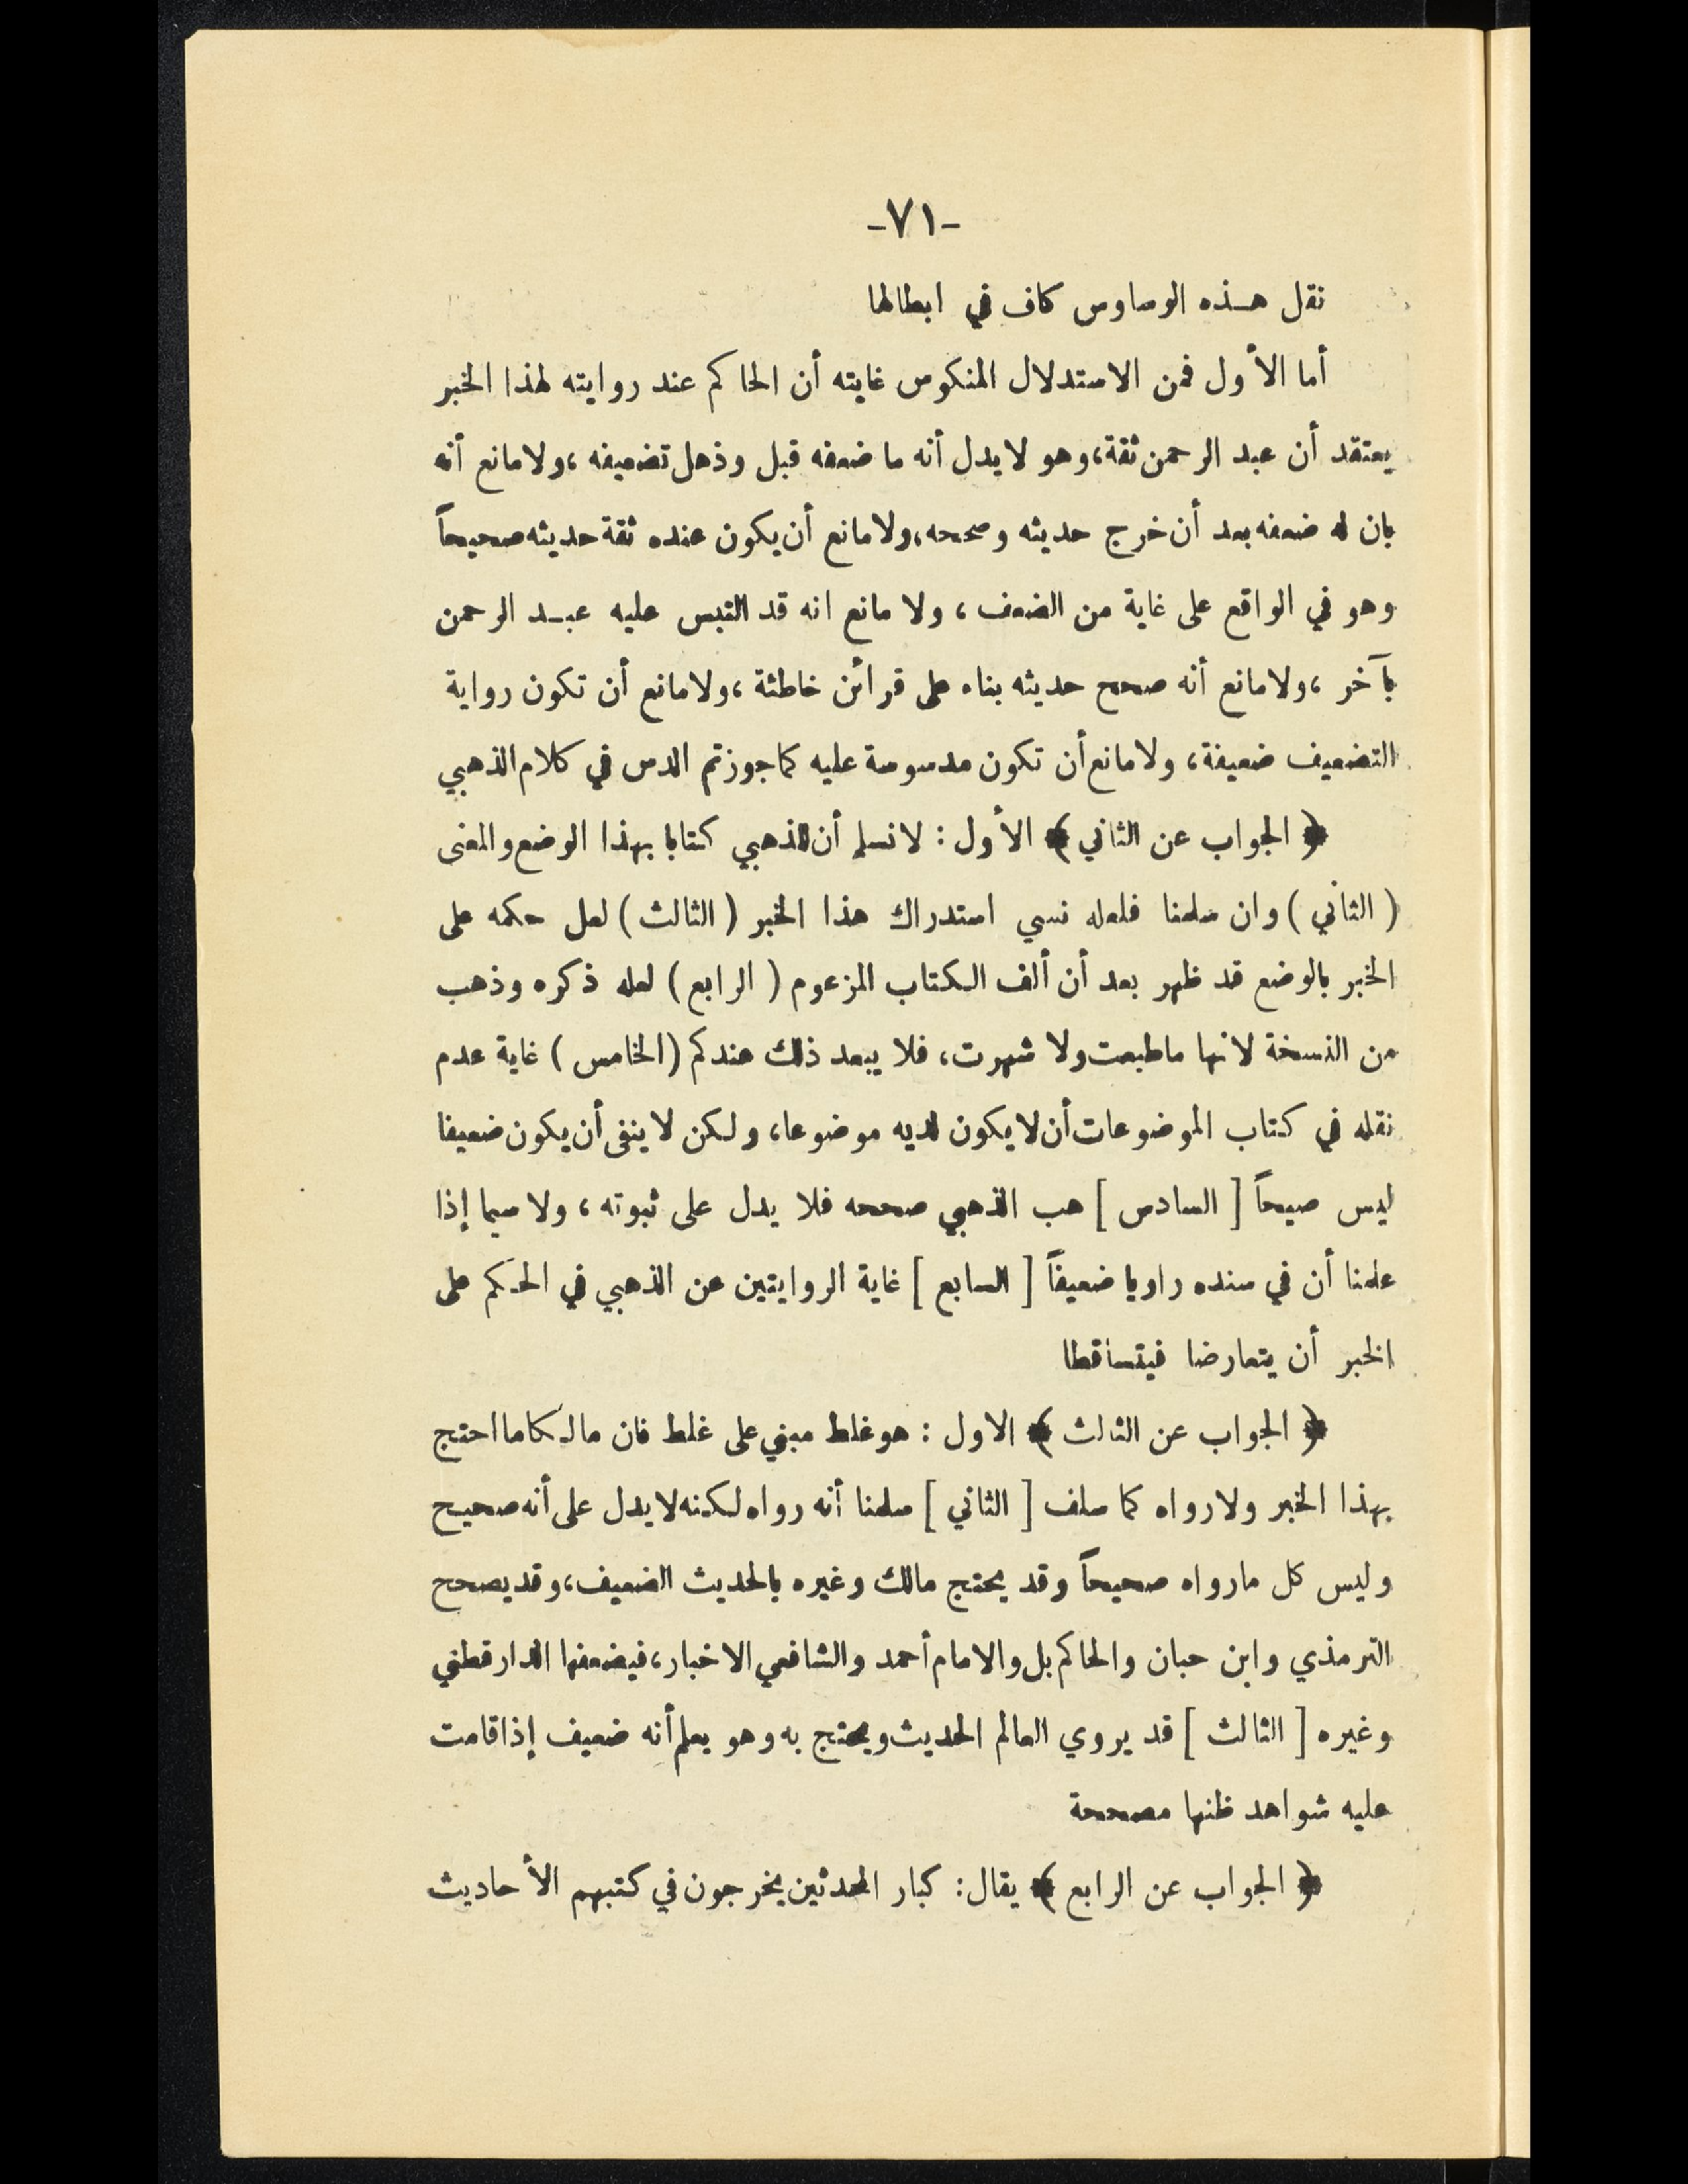 -٧١-
نقل هـذه الوساوس كاف في ابطالها
أما الأول فمن الاستدلال المنكوس غايته أن الحاكم عند روايته لهذا الخبر
يعتقد أن عبد الرحمن ثقة، وهو لا يدل أنه ما ضعفه قبل وذهل تضعيفه ، ولا مانع أنه
بان له ضعفه بعد أن خرج حديثه وصححه، ولا مانع أن يكون عنده ثقة حديثه صحيحاً
وهو في الواقع على غاية من الضعف ، ولا مانع انه قد التبس عليه عبـد الرحمن
بآخر ، ولا مانع أنه صحح حديثه بناء على قرائن خاطئة ، ولا مانع أن تكون رواية
التضعيف ضعيفة، ولا مانع أن تكون مدسوسة عليه كما جوزتم الدس في كلام الذهبي
﴿ الجواب عن الثاني ﴾ الأول : لا نسلم أن للذهبي كتابا بهذا الوضع والمعنى
( الثاني ) وان سلمنا فلعله نسي استدراك هذا الخبر ( الثالث ) لعل حكمه على
الخبر بالوضع قد ظهر بعد أن ألف الكتاب المزعوم ( الرابع ) لعله ذكره وذهب
من النسخة لانها ما طبعت ولا شهرت، فلا يبعد ذلك عندكم ( الخامس ) غاية عدم
نقله في كتاب الموضوعات أن لا يكون لديه موضوعا، ولكن لا ينفى أن يكون ضعيفا
ليس صيحاً [ السادس ] هب الذهبي صححه فلا يدل على ثبوته ، ولا سيما إذا
علمنا أن في سنده راويا ضعيفاً [ السابع ] غاية الروايتين عن الذهبي في الحكم على
الخبر أن يتعارضا فيتساقطا
﴿ الجواب عن الثالث ﴾ الاول : هو غلط مبني على غلط فان مالكا ما احتج
بهذا الخبر ولا رواه كما سلف [ الثاني ] سلمنا أنه رواه لكنه لا يدل على أنه صحيح
وليس كل ما رواه صحيحاً وقد يحتج مالك وغيره بالحديث الضعيف، وقد يصحح
الترمذي وابن حبان والحاكم بل والامام أحمد والشافعي الاخبار، فيضعفها الدارقطني
وغيره [ الثالث ] قد يروي العالم الحديث ويحتج به وهو يعلم أنه ضعيف إذا قامت
عليه شواهد ظنها مصححة
﴿ الجواب عن الرابع ﴾ يقال : كبار المحدثين يخرجون في كتبهم الأحاديث